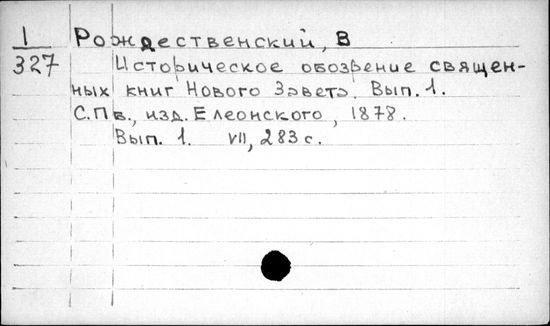 1 Рождественский, В
327 Историческое обозрение священ-
ных книг Нового Завета. Вып. 1.
С.Пб., изд. Елеонского, 1878.
Вып. 1. VII, 283 с.